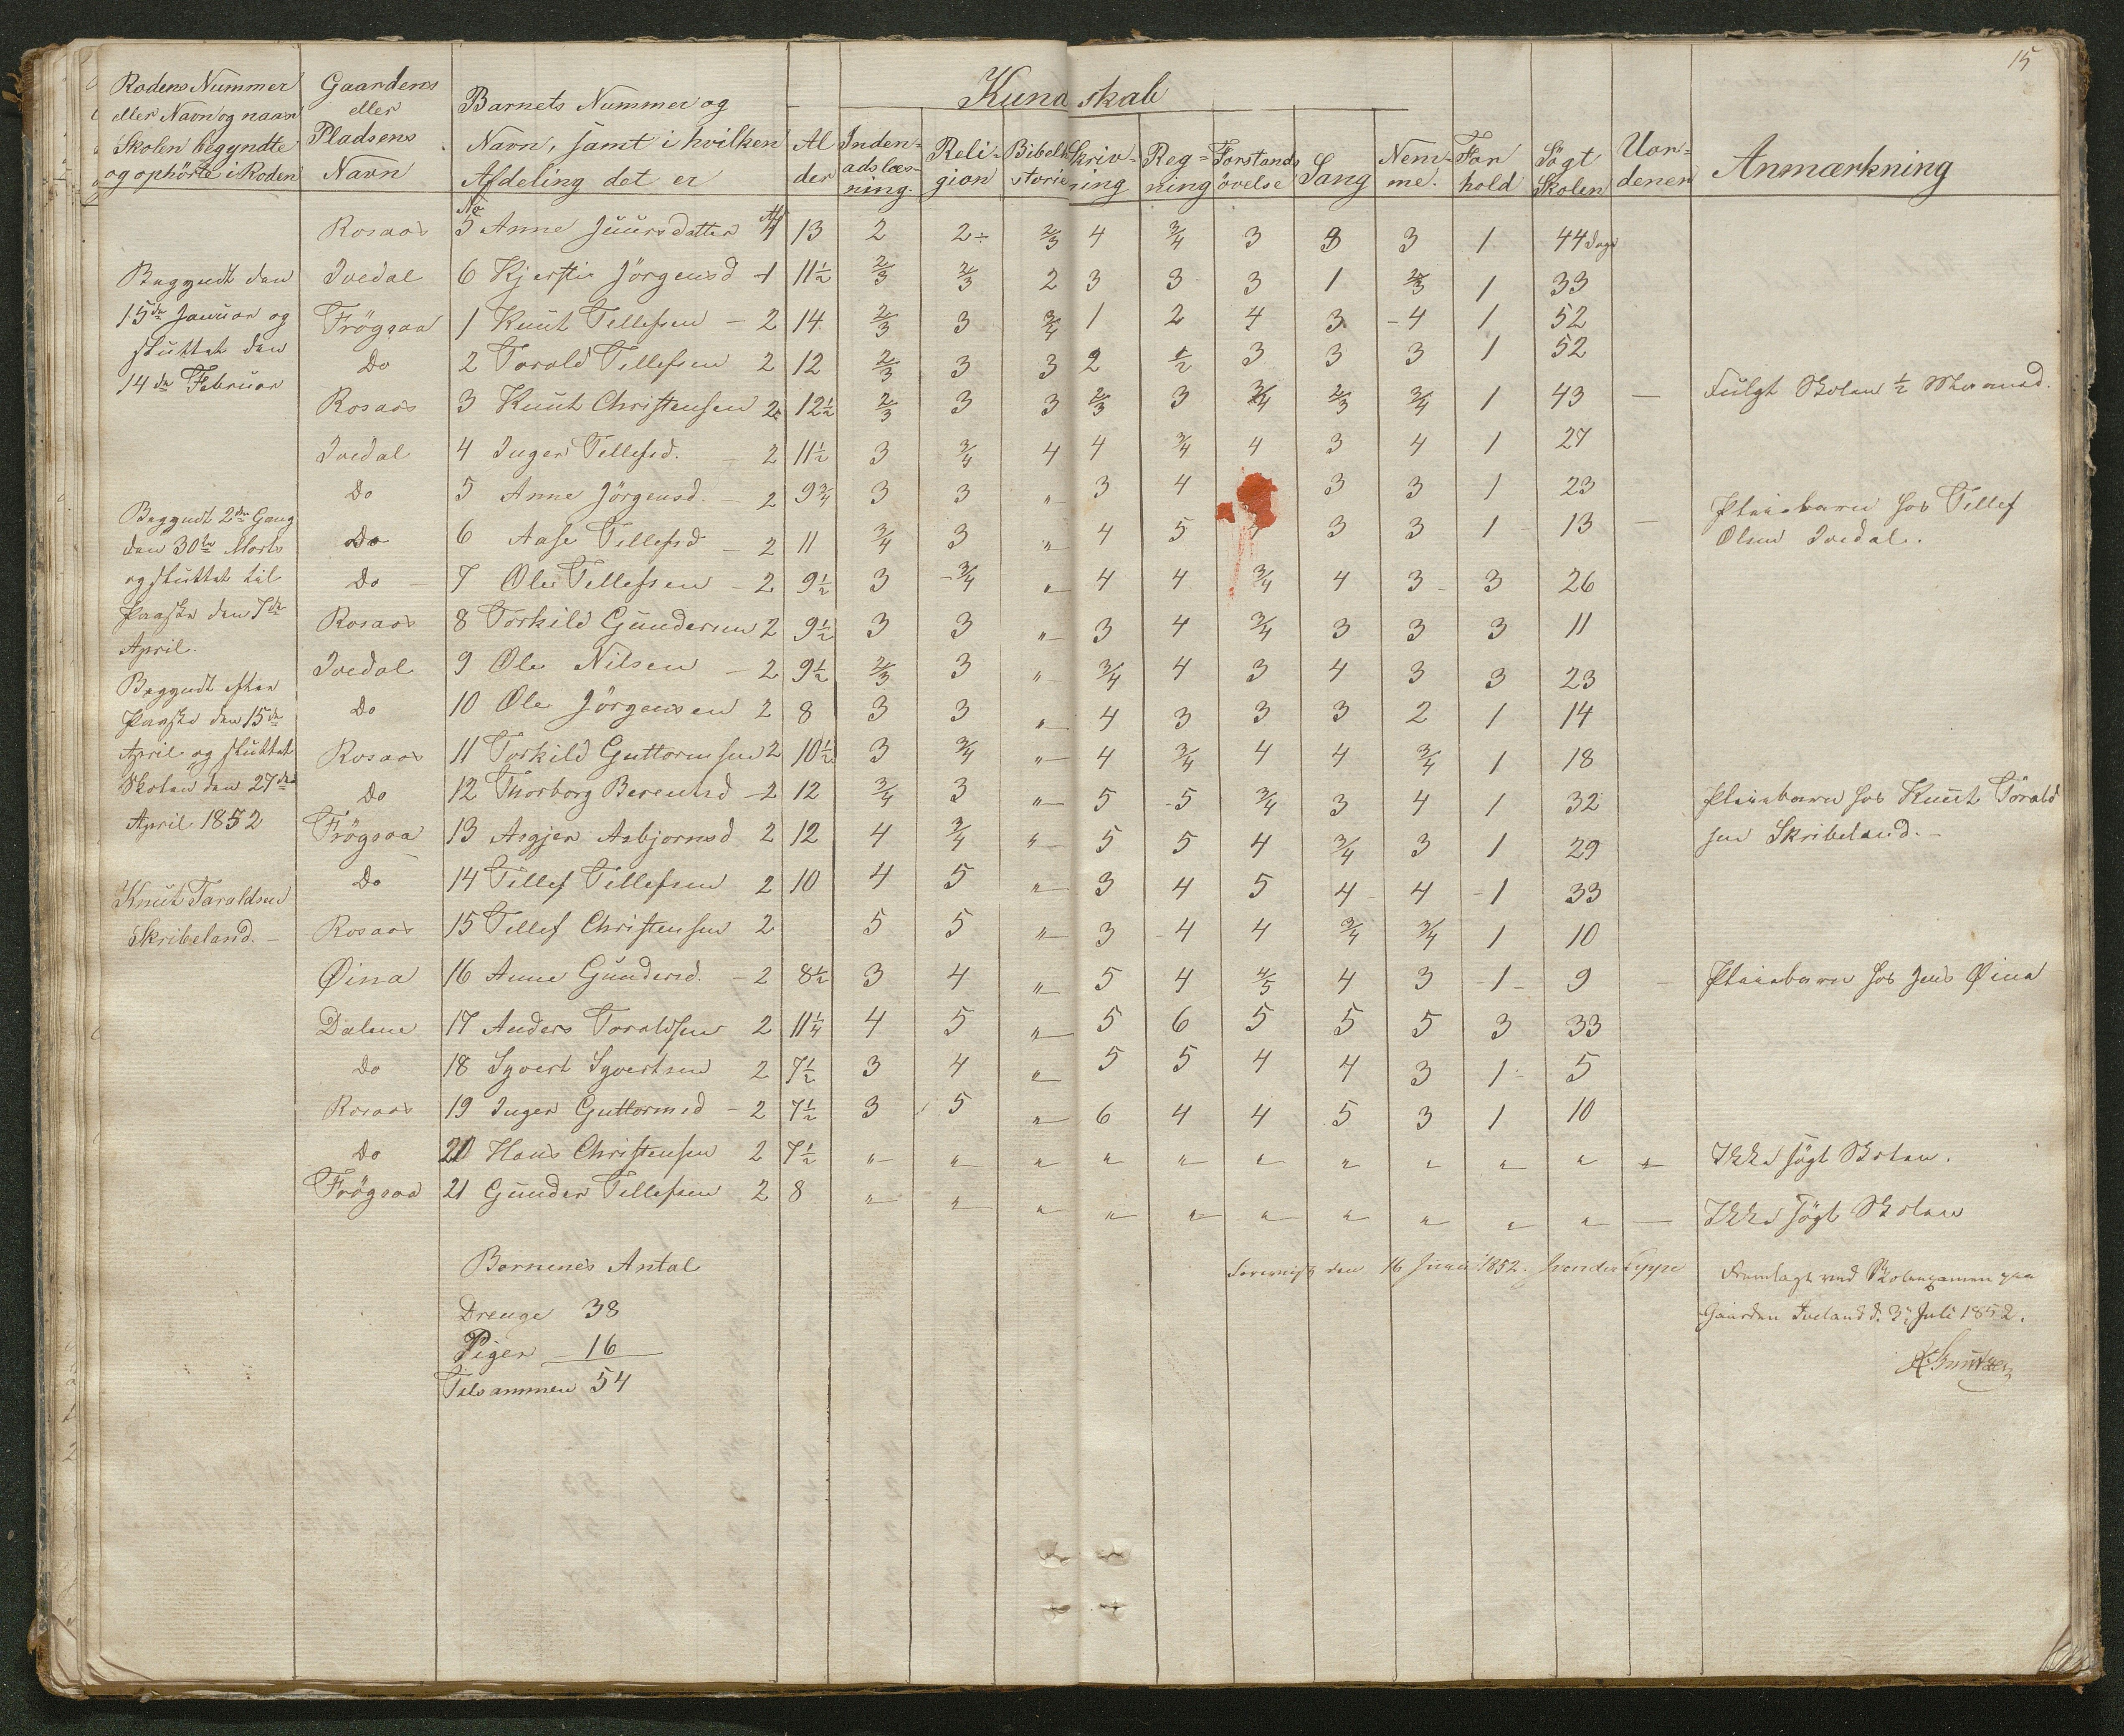 15
Rodens Nummer eller Navn og naar Skolen begyndte og ophörte i Roden | Gaardens eller Pladsens Navn | Barnets Nummer og Navn, samt i hvilken Afdeling det er | Alder | Kundskab | Indenadslæsning. | Religion | Bibelhistorie | Skrivning | Regning | Forstandsövelse | Sang | Nemme. | Forhold | Sögt Skolen | Uordener | Anmærkning
Rosaas No 5 Anne Juursdatter Af 1 13 2 2÷ 2/3 4 3/4 3 3 3 1 44 Dage
Ivedal 6 Kjersti Jörgensd 1 11½ 2/3 2/3 2 3 3 3 1 2/3 1 33
Frögsaa 1 Knut Tellefsen – 2 14 2/3 3 3/4 1 2 4 3 4 1 52
Do 2 Torald Tellefsen 2 12 2/3 3 3 2 1/2 3 3 3 1 52
Rosaas 3 Knut Christensen 2 12½ 2/3 3 3 2/3 3 3/4 2/3 3/4 1 43 – Fulgt Skolen ½ Maaned.
Ivedal 4 Inger Tellefsd. – 2 11½ 3 3/4 4 4 3/4 4 3 4 1 27
Do 5 Anne Jörgensd. – 2 9¾ 3 3 „ 3 4 3 3 1 23
Do 6 Aase Tellefsd – 2 11 3/4 3 „ 4 5 3 3 1 13 – Pleiebarn hos Tellef Olsen Ivedal.
Do 7 Ole Tellefsen – 2 9½ 3 3/4 „ 4 4 3/4 4 3 3 26
Rosaas 8 Torkild Gundersen 2 9½ 3 3 „ 3 4 3/4 3 3 3 11
Ivedal 9 Ole Nilsen – 2 9½ 2/3 3 „ 3/4 4 3 4 3 3 23
Do 10 Ole Jörgensen 2 8 3 3 „ 4 3 3 3 2 1 14
Rosaas 11 Torkild Guttormsen 2 10½ 3 3/4 „ 4 3/4 4 4 3/4 1 18
Do 12 Thorborg Berentsd – 2 12 3/4 3 „ 5 5 3/4 3 4 1 32 Pleiebarn hos Knut Törald
Frögsaa 13 Asgjer Asbjornsd 2 12 4 3/4 „ 5 5 4 3/4 3 1 29 sen Skribeland. –
Do 14 Tellef Tellefsen 2 10 4 5 „ 3 4 5 4 4 1 33
Rosaas 15 Tellef Christensen 2 5 5 „ 3 4 4 3/4 3/4 1 10
Øina 16 Anne Gundersd. – 2 8½ 3 4 „ 5 4 4/5 4 3 1 9 – Pleiebarn hos Jens Øina
Dalene 17 Anders Toraldsen 2 11¼ 4 5 „ 5 6 5 5 5 3 33
Do 18 Syvert Syvertsen 2 7½ 3 4 „ 5 5 4 4 3 1 5
Rosaas 19 Inger Guttormsd – 2 7½ 3 5 „ 6 4 4 5 3 1 10
Do 20 Hans Christensen 2 7½ „ „ „ „ „ „ „ „ „ „ „ Ikke sögt Skolen.
Frögsaa 21 Gunder Tellefsen 2 8 „ „ „ „ „ „ „ „ „ „ – Ikke sögt Skolen
Begyndt den
15de Januar og
sluttet den
14de Februar
Begyndt 2den Gang
den 30te Marts
og sluttet til
Paaske den 7de
April.
Begyndt efter
Paaske den 15de
April og sluttet
Skolen den 27de
April 1852
Knut Taraldsen
Skribeland. –
Bornenes Antal
Drenge 38
Piger 16
Tilsammen 54
Foreviist den 16 Juni 1852.
Fremlagt ved Skoleexamen paa
Gaarden Iveland d. 3. Juli 1852.